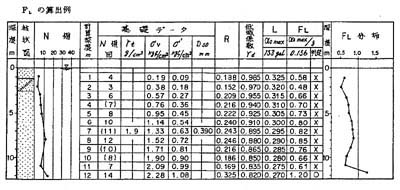 FL の算出例
深度 m
柱状図
N 値
10 20 30 40
計算深度 m
基礎データ
N 値 回
γt g/cm³
σv kg/cm²
σ' kg/cm²
D50 mm
R
低減係数 γd
L
αs max
153 gal
FL
αs max/g
0.156
判定
深度 m
FL 分布
0.5 1.0
1 4 0.19 0.09 0.138 0.985 0.325 0.58 X
2 3 0.38 0.18 0.152 0.970 0.320 0.48 X
3 6 0.57 0.27 0.209 0.955 0.315 0.66 X
4 (7) 0.76 0.36 0.216 0.940 0.310 0.70 X
5 8 0.95 0.45 0.222 0.925 0.305 0.73 X
6 10 1.14 0.54 0.240 0.910 0.300 0.80 X
7 (11) 1.9 1.33 0.63 0.390 0.243 0.895 0.295 0.82 X
8 12 1.52 0.72 0.246 0.880 0.290 0.85 X
9 (10) 1.71 0.81 0.216 0.865 0.285 0.76 X
10 (8) 1.90 0.90 0.186 0.850 0.280 0.66 X
11 7 2.09 0.99 0.169 0.835 0.275 0.61 X
12 14 2.28 1.08 0.325 0.820 0.270 1.20 O
5
10